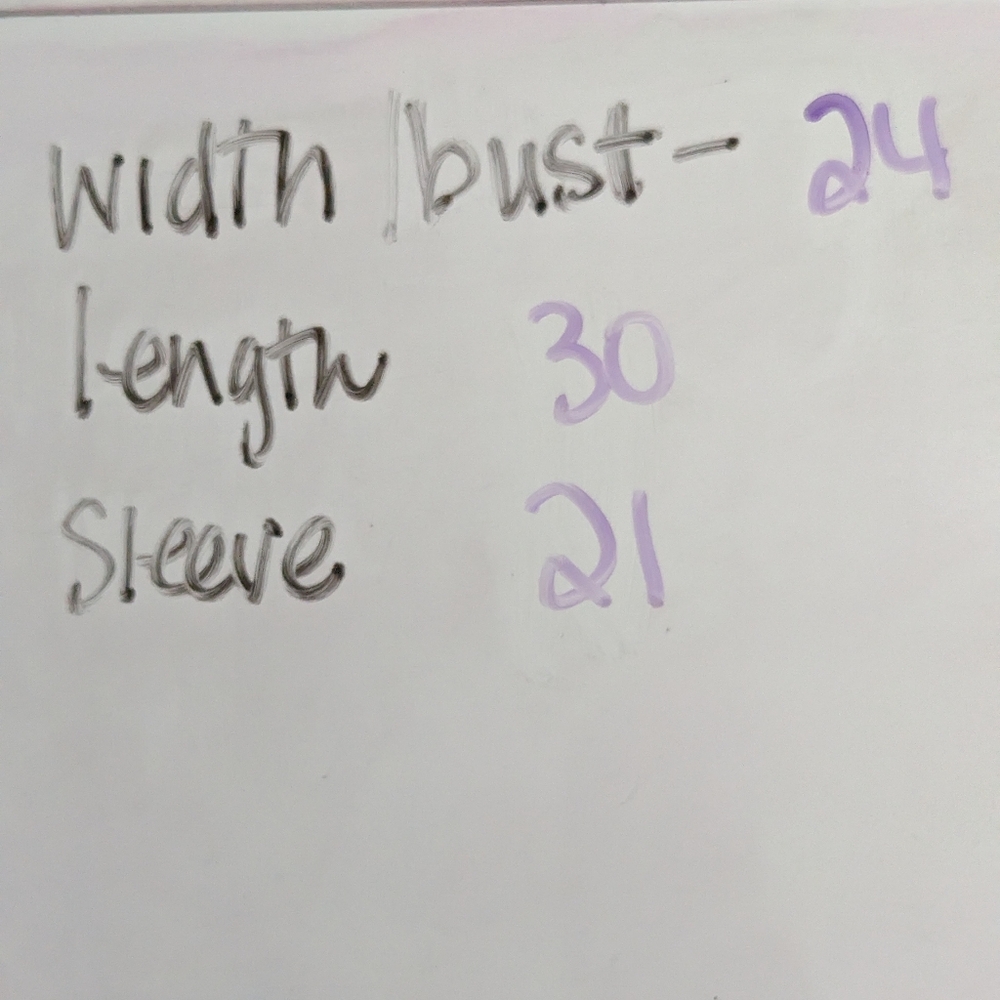 width /bust - 24
Length 30
Sleeve 21